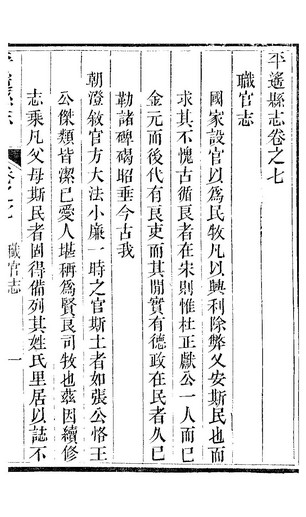 平遙縣志卷之七
職官志
國家設官以爲民牧凡以興利除弊乂安斯民也而
求其不愧古循良者在宋則惟杜正獻公一人而已
金元而後代有良吏而其間實有德政在民者久已
勒諸碑碣昭垂今古我
朝澄敘官方大法小廉一時之官斯土者如張公恪王
公傑類皆潔己愛人堪稱爲賢良司牧也茲因續修
志乘凡父母斯民者固得備列其姓氏里居以誌不
職官志
一